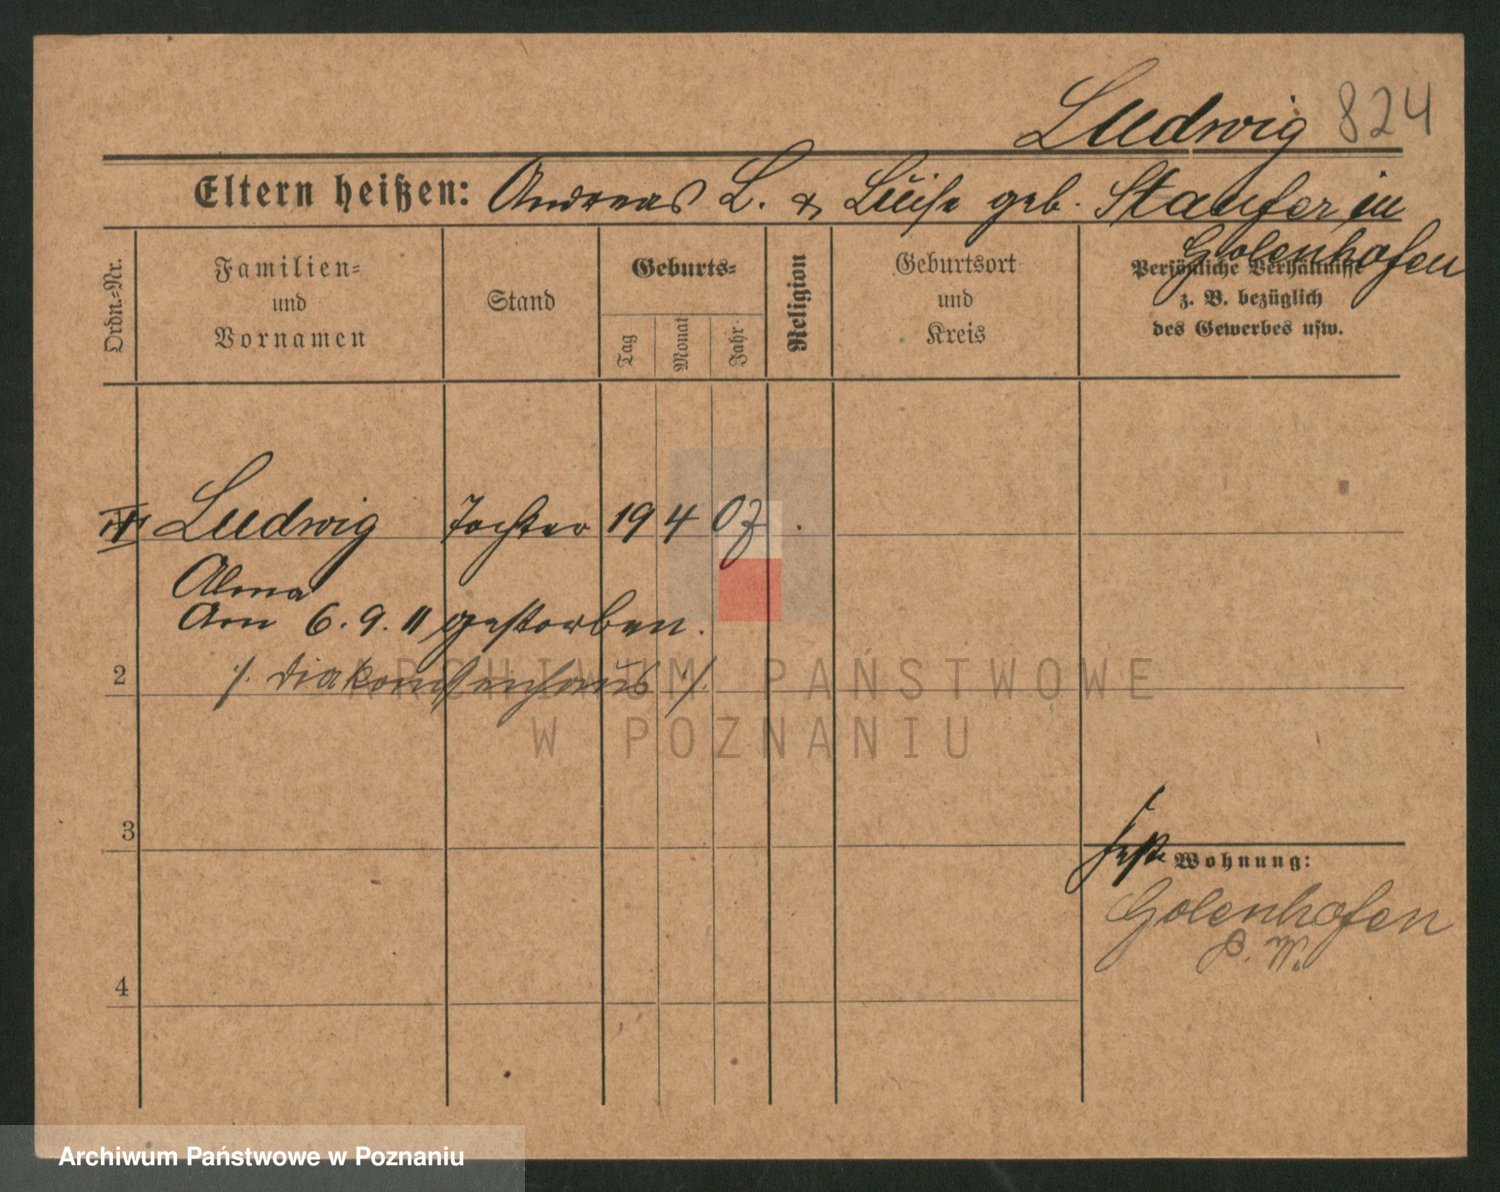 Ludwig 824
Eltern heißen: Andreas L. & Luise geb. Staufer in
Golenhofen
Ordn.=Nr.
Familien=
und
Vornamen
Stand
Geburts=
Tag
Monat
Jahr
Religion
Geburtsort
und
Kreis
Persönliche Verhältnisse
z. B. bezüglich
des Gewerbes usw.
Ludwig Tochter 19 4 07.
Alma
Am 6.9.11 gestorben.
2 ·/. Diakonissenhaus ·/.
ARCHIWUM PAŃSTWOWE
W POZNANIU
3
Wohnung:
Golenhofen
P. W.
4
Archiwum Państwowe w Poznaniu